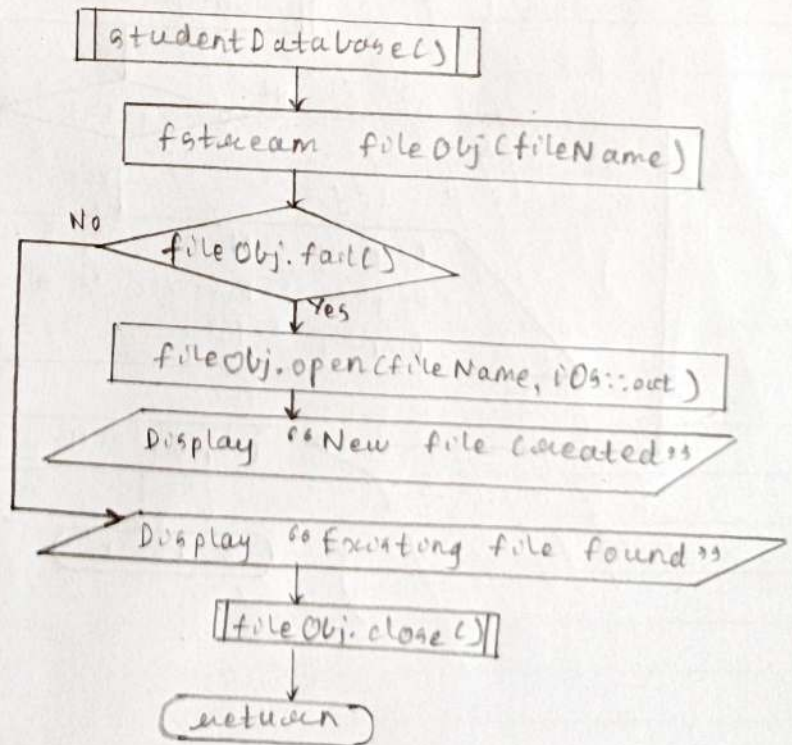 studentDatabase()
fstream fileObj(fileName)
No
fileObj.fail()
Yes
fileObj.open(fileName, iOs::out)
Display “New file Created”
Display “Existing file found”
fileObj.close()
return